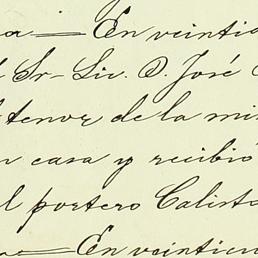 a — En veintic
l Sr. Lic. D. José
tenor de la mi
n casa y recibió
l portero Calist
— En veinticu